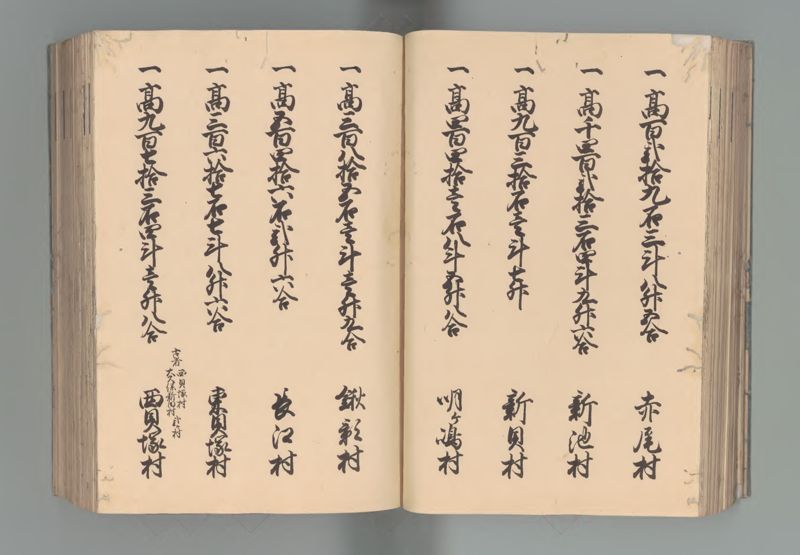 一高百弐拾九石三斗八升五合 赤尾村
一高千四百弐拾三石四斗九升六合 新池村
一高九百三拾石壱斗七升 新貝村
一高四百四拾壱石八斗五升八合 明ケ嶋村
一高三百八拾四石壱斗壱升九合 鍬影村
一高五百四拾六石弐升六合 長江村
一高三百六拾七石七斗八升六合 東貝塚村
一高九百七拾三石四斗壱升八合 西貝塚村
古者西貝塚村
大久保新田村 弐村